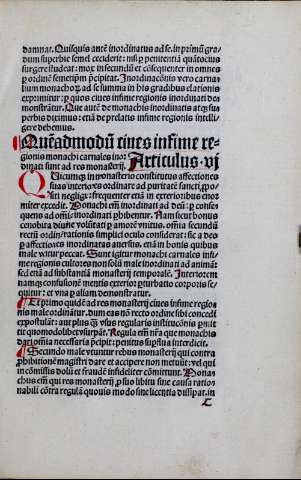 damnat. Quisquis autē inordinatus ad se. in primū gra-
dum superbie semel ceciderit: nisi p penitentiā quātocius
surgere studeat: mox in secundū et cōsequenter in omnes
p ordinē semetipm p̄cipitat. Inordinacōnis vero carna-
lium monachoꝝ ad se summa in his gradibus elationis
exprimitur: p quos ciues infime regionis inordinati de-
monstrātur. Que autē de monachis inordinatis atꝫ su-
perbis diximus: etiā de prelatis infime regionis intelli-
gere debemus.
Quēadmodū ciues infime re-
gionis monachi carnales inor-
dinati sunt ad res monasterij. Articulus. vj
Quicunqꝫ in monasterio constitutus affectiones
suas interiores ordinare ad puritatē sancti ꝓpo-
siti negligit: frequenter etiā in exterioribus enor-
miter excedit. Monachi em̄ inordinati ad deū: p conse-
quens ad om̄ia inordinati phibentur. Nam sicut bonus
cenobita diuine volūtati p amorē vnitus. om̄ia secundū
rectū ordinationis simplici oculo considerat: sic a deo
p affectiones inordinatas auersus. etiā in bonis quibus
male vtitur peccat. Sunt igitur monachi carnales infi-
me regionis cultores non solū male inordinati ad animā:
sed etiā ad substantiā monasterij temporalē. Interiorem
namqꝫ confusionē mentis exterior pturbatio corporis se-
quitur: et vna p aliam demonstratur.
Et primo quidē ad res monasterij ciues infime regio-
nis male ordinātur. dum eas nō recto ordine sibi concedi
expostulāt: aut plus qꝫ vsus regularis institucōnis pmit-
tit quomodolibet vsurpāt. Regula em̄ nr̄a que monachis
dari om̄ia necessaria p̄cipit: penitus supflua interdicit.
Secundo male vtuntur rebus monasterij qui contra
phibitionē magistri dare et accipere non metuūt: vel qui
in cōmissis dolū et fraudē infideliter cōmittunt. Monas-
chus em̄ qui res monasterij ꝓ suo libitu sine causa ratio-
nabili cōtra regulā quouis modo sine licentia dissipat. in
c